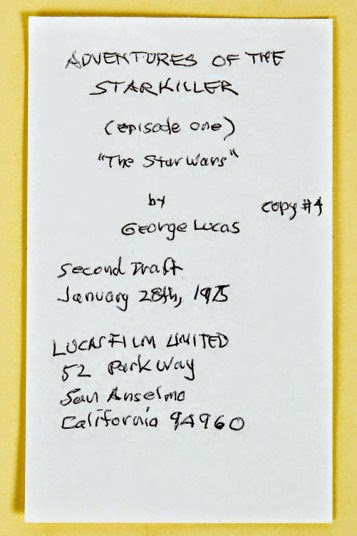 ADVENTURES OF THE
STARKILLER
(episode one)
"The Star Wars"
by
George Lucas
copy #4
Second Draft
January 28th, 1975
LUCASFILM LIMITED
52 Park Way
San Anselmo
California 94960